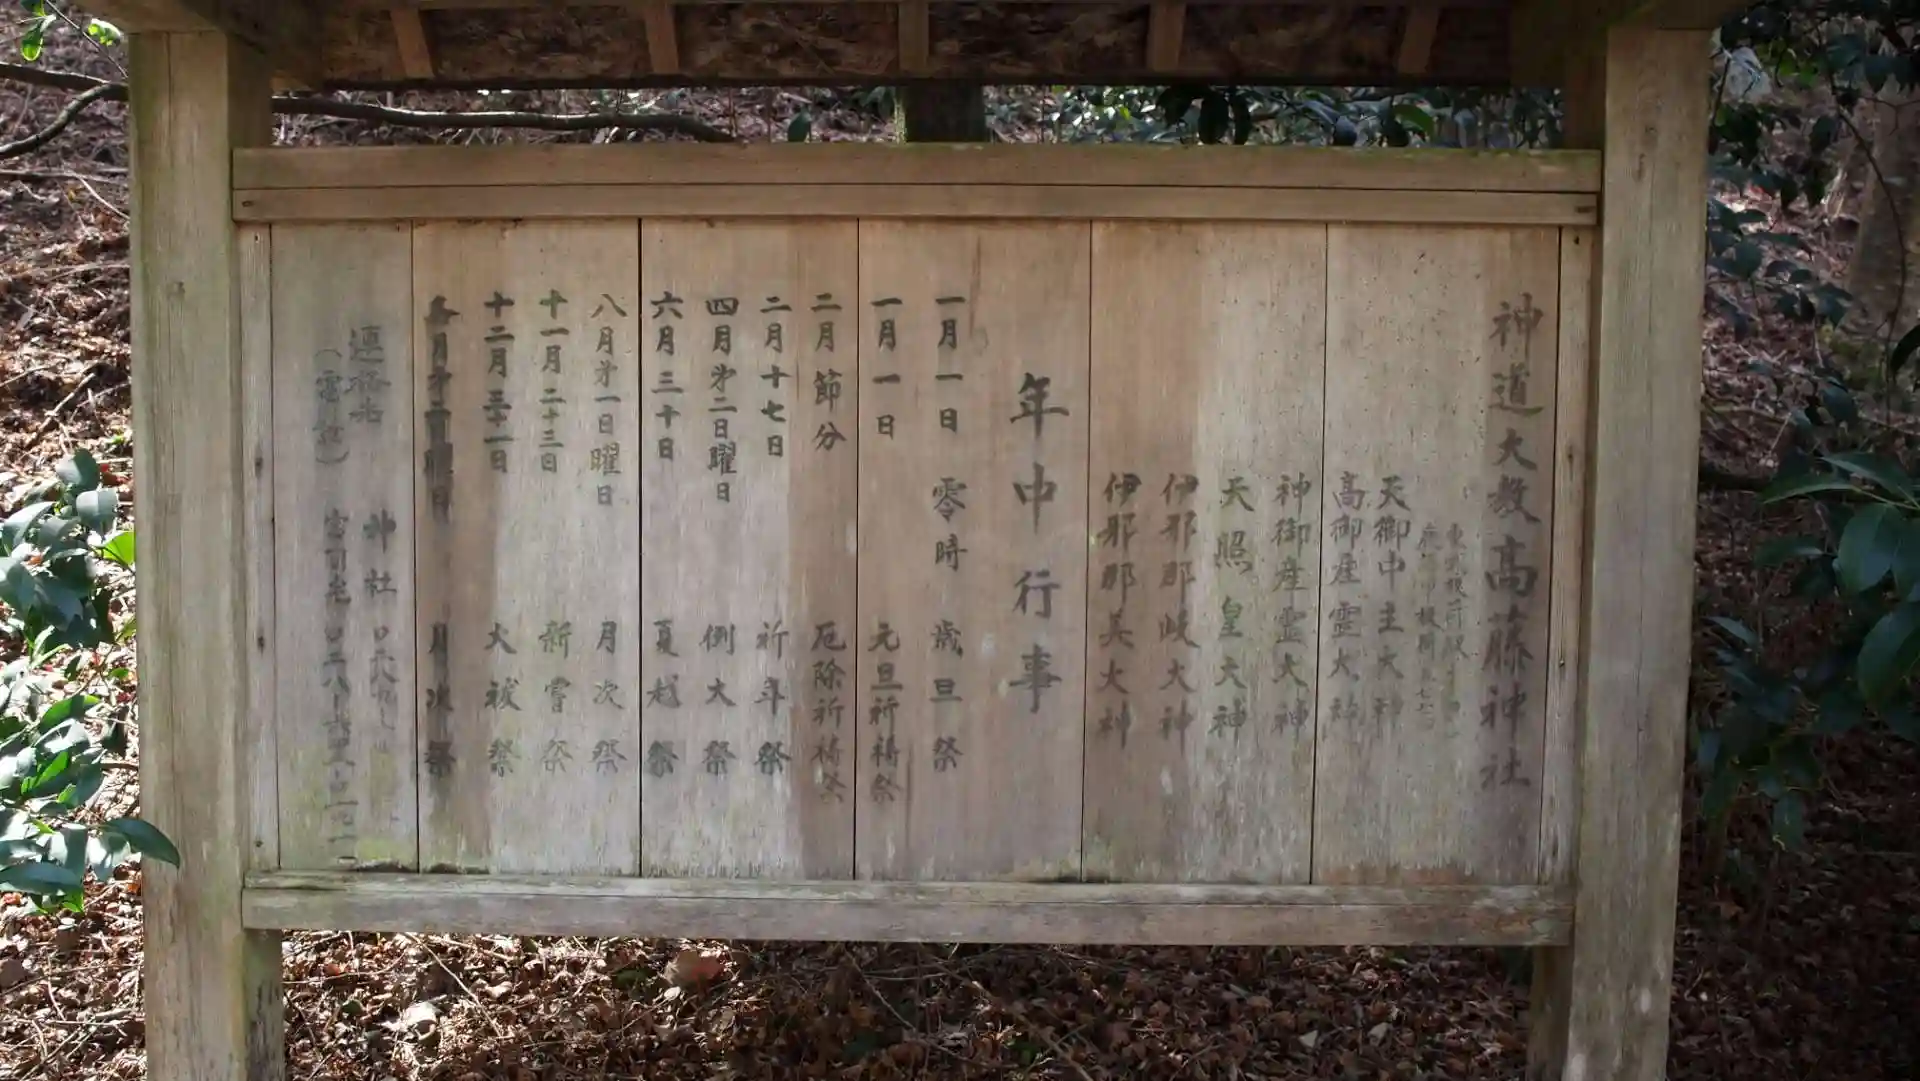 神道大教高藤神社
天御中主大神
高御産霊大神
神御産霊大神
天照皇大神
伊那那岐大神
伊那那美大神
年中行事
一月一日 零時 歳旦祭
一月一日 元旦祈祷祭
二月節分 厄除祈祷祭
二月十七日 祈年祭
四月第二日曜日 例大祭
六月三十日 夏越祭
八月第一日曜日 月次祭
十一月二十三日 新嘗祭
十二月三十一日 大祓祭
月次祭
連絡先 神社
(電話)